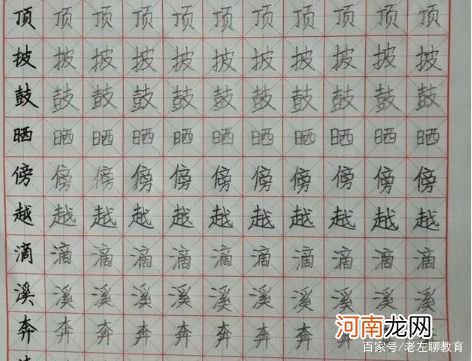 顶顶顶顶顶顶顶顶顶顶顶
披披披披披披披披披披披
鼓鼓鼓鼓鼓鼓鼓鼓鼓鼓鼓
晒晒晒晒晒晒晒晒晒晒晒
傍傍傍傍傍傍傍傍傍傍傍
越越越越越越越越越越越
滴滴滴滴滴滴滴滴滴滴滴
溪溪溪溪溪溪溪溪溪溪溪
奔奔奔奔奔奔奔奔奔奔奔
河南龙网
百家号/老左聊教育